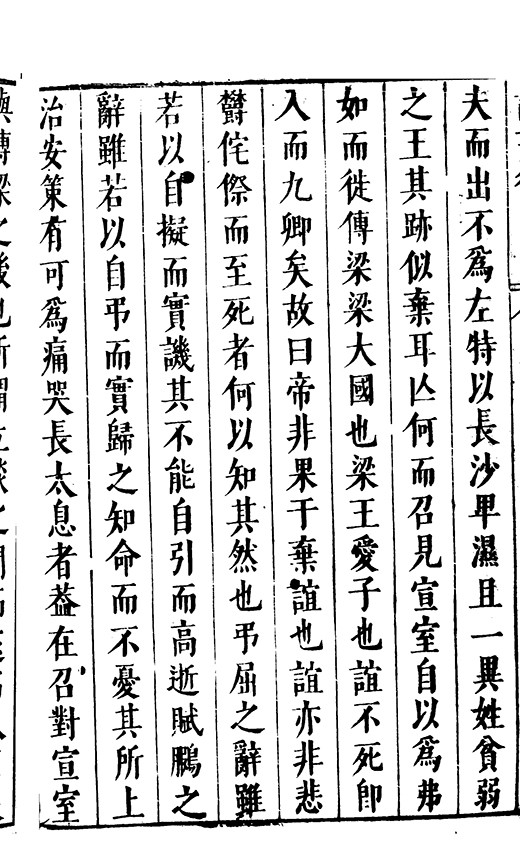 夫而出不爲左特以長沙卑濕且一異姓貧弱
之王其跡似棄耳亾何而召見宣室自以爲弗
如而徙傅梁梁大國也梁王愛子也誼不死卽
入而九卿矣故曰帝非果于棄誼也誼亦非悲
欝侘傺而至死者何以知其然也弔屈之辭雖
若以自擬而實譏其不能自引而高逝賦鵩之
辭雖若以自弔而實歸之知命而不憂其所上
治安策有可爲痛哭長太息者葢在召對宣室